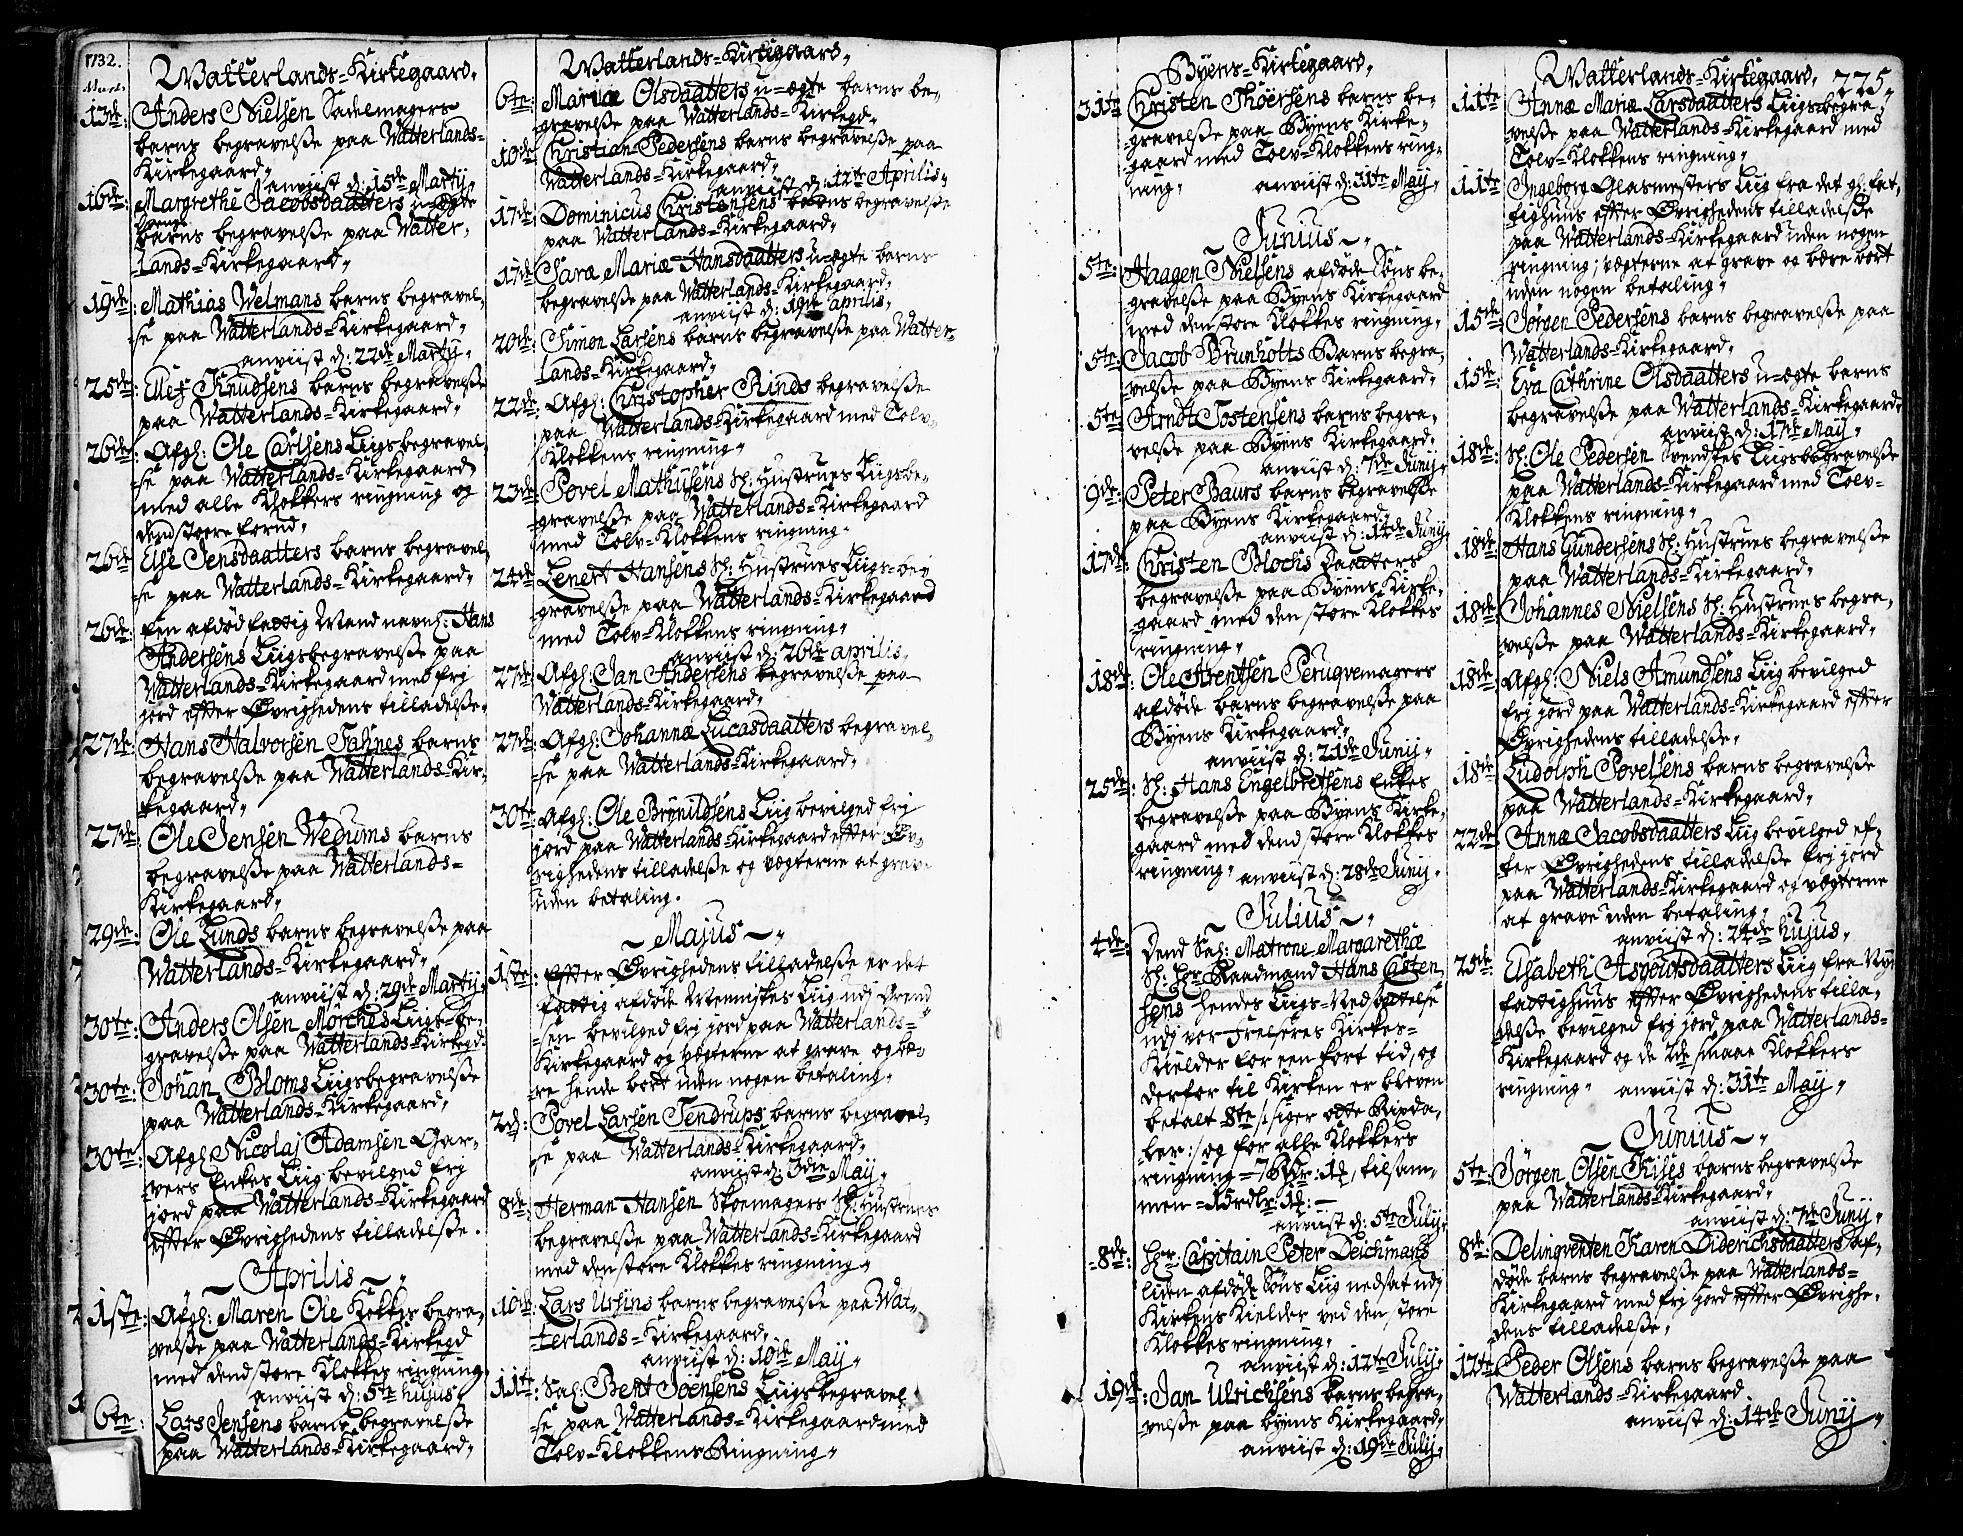 1732.
Mart.
Watterlands-Kirkegaard,
13de: Anders Nielsen Sadelmagers
barns begravelße paa Watterlands-
Kirkegaard,
anviist d: 15de Martij,
16de: Margrethe Jacobsdaatters u-ægte
barns begravelße paa Watter,
lands-Kirkegaard,
19de: Mathias Welmans barns begravel,
ße paa Watterlands-Kirkegaard,
anviist d: 22de Martij,
25de: Ellef Knudsens barns begravelße
paa Watterlands-Kirkegaard,
26de: Afgl: Ole Carlsens Liigs begravel,
ße paa Watterlands-Kirkegaard
med alle Klokkers ringning og
dend stoere forud,
26de: Else Jensdaatters barns begravel,
ße paa Watterlands-Kirkegaard,
26de: Een afdød fattig Mand navnl: Hans
Andersens Liigsbegravelße paa
Watterlands-Kirkegaard med frj
jord efter Øvrighedens tilladelße,
27de: Hans Halvorsen Fahnes barns
begravelße paa Watterlands-Kir,
kegaard,
27de: Ole Jensen Wedums barns
begravelße paa Watterlands-
Kirkegaard,
29de: Ole Lunds barns begravelße paa
Watterlands-Kirkegaard,
anviist d: 29de Martij,
30te: Anders Olsen Morches Liigs-be,
gravelße paa Watterlands-Kirkegd:
30te: Johan Bloms Liigsbegravelße
paa Watterlands-Kirkegaard,
30te: Afgl Nicolaj Adamsen Gar,
vers Enkes Liig bevilged frj
jord paa Watterlands-Kirkegaard
efter Øvrighedens tilladelße.
~ Aprilis ~
1ste: Afgl: Maren Ole Kokkes begra,
velße paa Watterlands-Kirkegd
med dend store Klokkes ringning,
anviist d: 5te hujus,
6te: Lars Jensens barns begravelße
paa Watterlands-Kirkegaard,
Watterlands-Kirkegaard,
6te: Mariæ Olsdaatters u-ægte barns be,
gravelße paa Watterlands-Kirkegd,
10de: Christian Pedersens barns begravelße paa
Watterlands-Kirkegaard,
anviist d: 12te Aprilis,
17de: Dominicus Christensens barns begravelße
paa Watterlands-Kirkegaard,
17de: Saræ Mariæ Hansdaatters u-ægte barns
begravelße paa Watterlands-Kirkegaard,
anviist d: 19de aprilis,
20de: Simon Larsens barns begravelße paa Watter,
lands-Kirkegaard,
22de: Afgl: Christopher Rinds begravelße
paa Watterlands-Kirkegaard med Tolv-
Klokkens ringning,
23de: Povel Mathisens Sl: Hustrues Liigsbe,
gravelße paa Watterlands-Kirkegaard
med Tolv-Klokkens ringning,
24de: Lenert Hansens Sl: Hustrues Liigs-be,
gravelße paa Watterlands-Kirkegaard
med Tolv-Klokkens ringning,
anviist d: 26de aprilis,
27de: Afgl: Jan Andersens begravelße paa
Watterlands-Kirkegaard,
27de: Afgl: Johannæ Lucasdaatters begravel,
ße paa Watterlands-Kirkegaard,
30te: Afgl: Ole Brynildsens Liig bevilged frj
jord paa Watterlands-Kirkegaard efter Øv,
righedens tilladelße og vægterne at grave
uden betaling.
~ Majus ~
1ste: Efter Øvrighedens tilladelße er det
fattig afdøde Menniskes Liig udj Grend,
sen bevilged frj jord paa Watterlands-
Kirkegaard og vægterne at grave og bæ,
re hende bort uden nogen betaling,
2d: Povel Larsen Tendrups barns begravel,
ße paa Watterlands-Kirkegaard,
anviist d: 3die Maij,
8de: Herman Hansen Skoemagers Sl: Hustrues
begravelße paa Watterlands-Kirkegaard
med den store Klokkes ringning,
10de: Lars Ursins barns begravelße paa Wat,
terlands-Kirkegaard,
anviist d: 10de Maij,
11te: Sal: Bent Joensens Liigs begravel,
ße paa Watterlands-Kirkegaard med
Tolv-Klokkens Ringning,
Byens-Kirkegaard,
31te: Christen Thöersens barns be,
gravelße paa Byens Kirke,
gaard med Tolv-Klokkens ring,
ning, anviist d: 31te Maij,
~ Junius ~
5te: Haagen Nielsens afdøde Søns be,
gravelße paa Byens Kirkegaard
med den store Klokkes ringning,
5te: Jacob Brunholtts Barns begra,
velße paa Byens Kirkegaard,
5te Arndt Tostensens barns begra,
velße paa Byens Kirkegaard,
anviist d: 7de Junij,
9de: Peter Baurs barns begravelße
paa Byens Kirkegaard,
anviist d: 14de Junij,
17de: Christen Blochs Daatters
begravelße paa Byens Kirke,
gaard med den store Klokkes
ringning,
18de: Ole Arentsen Peruqvemagers
afdøde barns begravelße paa
Byens Kirkegaard,
anviist d: 21de Junij,
25de: Sl: Hans Engelbretsens Enkes
begravelße paa Byens Kirke,
gaard med dend store Klokkes
ringning, anviist d: 28de Junij,
~ Julius ~
4de: Dend Sal: Matrone Margarethæ
Sl: Hr Raadmand Hans Casten,
sens hendes Liigs-Nedsættelße
udj vor Frelseres Kirkes-
Kielder for een kort tid, og
derfor til Kirken er bleven
betalt 8te /: siger otte Rixda,
ler :/ og for alle Klokkers
ringning - 7 Rdr: 1#, tilsam,
men - 15 rdlr: 1#: -
anviist d: 5te Julij,
8de: Hr: Capitain Peter Deichmans
liden afdøde Søns Liig nedsat udj
Kirkens Kielder ved den store
Klokkes ringning,
anviist d: 12te Julij,
19de: Jan Ulrichsens barns begra,
velße paa byens Kirkegaard,
anviist d: 19de Julij,
Watterlands-Kirkegaard, 225,
11te Annæ Mariæ Larsdaatters Liigsbegra,
velße paa Watterlands-Kirkegaard med
Tolv-Klokkens ringning,
11te: Ingeborg Glasmesters Liig fra det gl: Fat,
tighuus efter Øvrighedens tilladelße
paa Watterlands-Kirkegaard uden nogen
ringning, vægterne at grave og bære bort
uden nogen betaling,
15de: Jørgen Pedersens barns begravelße paa
Watterlands-Kirkegaard,
15de: Eva Cathrine Olsdaatters u-ægte barns
begravelße paa Watterlands-Kirkegaard,
anviist d: 17de Maij,
18de: Sl: Ole Pedersen Svendtes Liigsbegravelße
paa Watterlands-Kirkegaard med Tolv-
Klokkens ringning,
18de: Hans Gundersens Sl: Hustrues begravelße
paa Watterlands-Kirkegaard,
18de: Johannes Nielsens Sl: Hustrues begra,
velße paa Watterlands-Kirkegaard,
18de: Afgl: Niels Amundsens Liig bevilged
frj jord paa Watterlands-Kirkegaard efter
Øvrighedens tilladelße,
18de: Ludolph Povelsens barns begravelße
paa Watterlands-Kirkegaard,
22de: Annæ Jacobsdaatters Liig bevilged ef,
ter Øvrighedens tilladelße frj jord
paa Watterlands-Kirkegaard og vægterne
at grave uden betaling,
anviist d: 24de hujus,
25de: Elsabeth Asvoutsdaatters Liig fra Nye
fattighuus efter Øvrighedens tilla,
delße bevilged frj jord paa Watterlands-
Kirkegaard og de 2de smaae Klokkers
ringning, anviist d: 31te Maij,
~ Junius ~
5te: Jørgen Olsen Friises barns begravelße
paa Watterlands-Kirkegaard,
anviist d: 7de Junij,
8de: Delinqventen Karen Diderichsdaatters af,
døde barns begravelße paa Watterlands-
Kirkegaard med frj jord efter Øvrighe,
dens tilladelße,
12te: Peder Olsens barns begravelße paa
Watterlands-Kirkegaard
anviist d: 14de Junij,